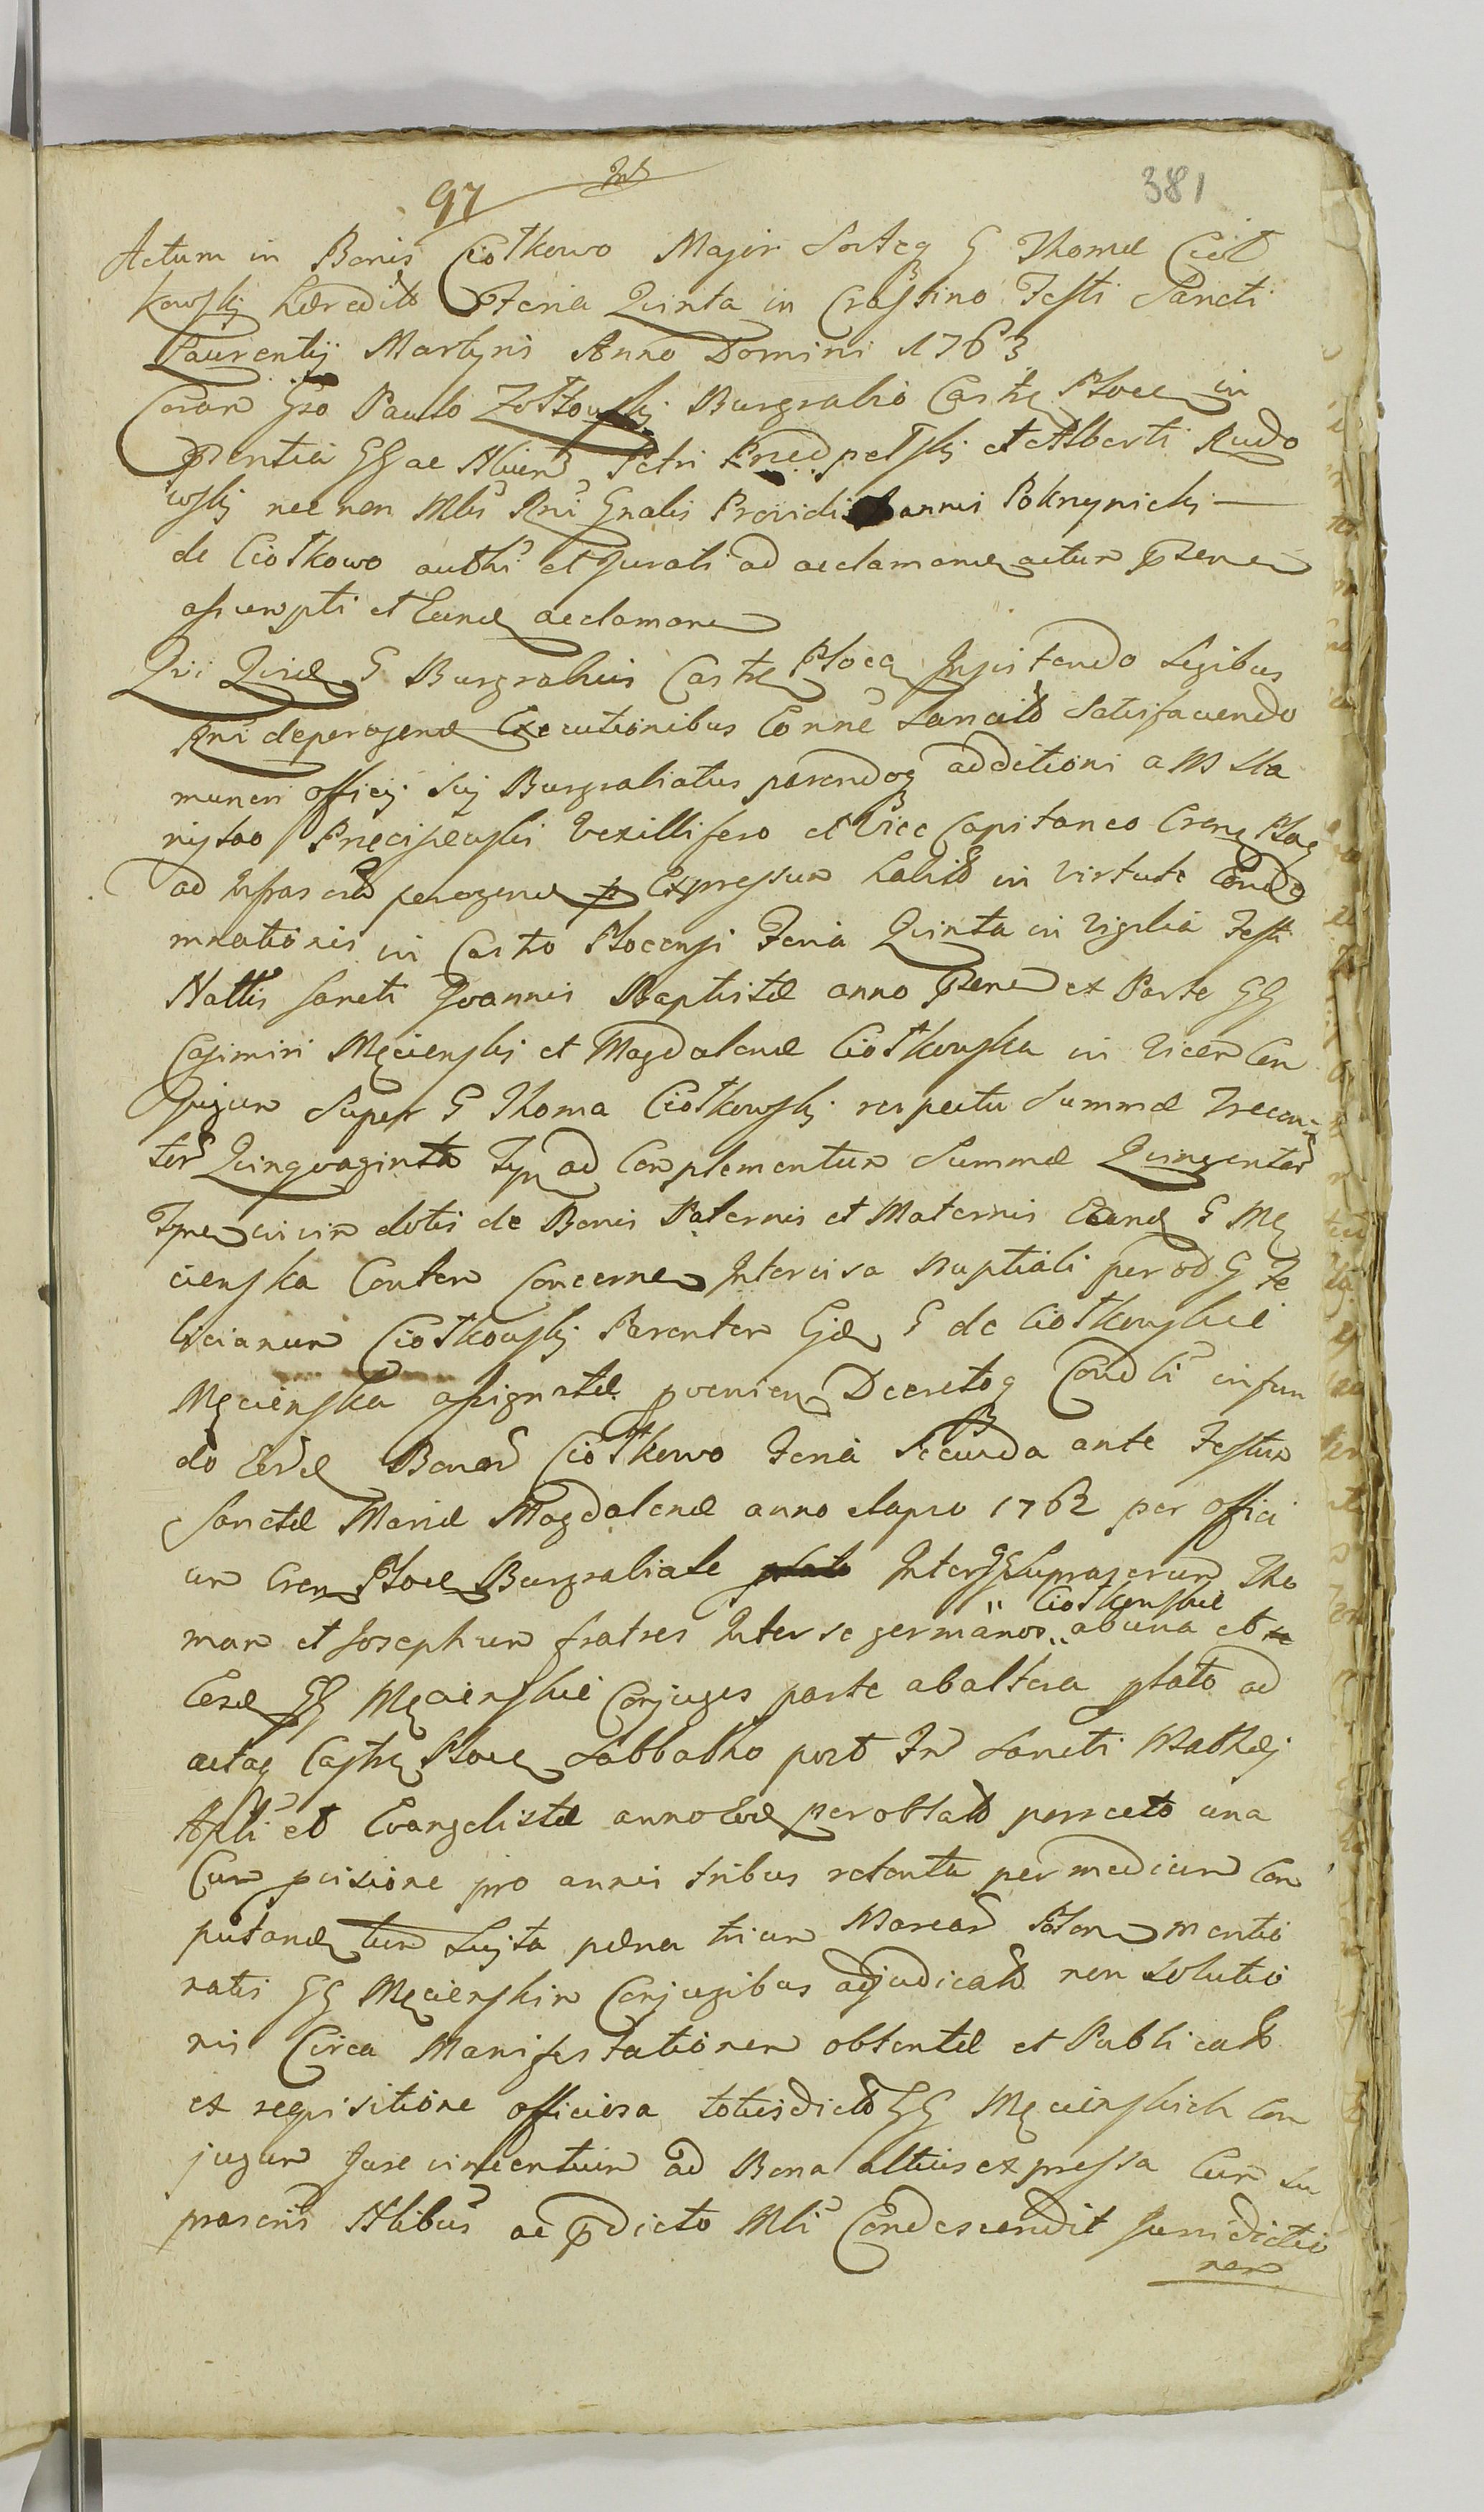 97
381
Actum in Bonis Ciołkowo Major Sorteq G Thomæ Cioł
kowskij hæredits Feria Quinta in Crastino Festi Sancti
Laurentij Martyris Anno Domini 1763
Coram Gso Paulo Burgrabio Castr Ploce in
pntia GG ac Petri et Alberti Rudo
wskij nec non Mlis Rni Gnalis Providi Joannis Pokrzynicki
de Ciołkowo authi et Jurati ad acclamand actum
et Eund acclaman
Qui Quid G Burgrabius Castr Ploce Insistendo Legibus
Rni de peragend Executionibus Conne Sancit Satisfaciendo
muneri officij sui Burgrabiatus parendoq additioni a M Sta
nislao Vexillifero et Vice Capitaneo Cren
ad peragend Expressum habit in virtute Conde
mnationis in Castro Plocensi Feria Quinta in Vigilia Festi
Natlis Sancti Joannis Baptistæ anno ex Parte GG
Casimiri Męcienskij et Magdalenæ Ciołkowska in Vicem Con
jugum Super G Thoma Ciołkowskij respectu Summæ Trecen
tor Quinquaginta Fpn ad Complementum Summæ Quingentor
dotis de Bonis Paternis et Maternis Eand G Mę
cienska Conten Concernen Intercisa Nuptiali per od G Fe
licianum Ciołkowskij Parentem Ejd G de Ciołkowskie
Męcienska assignatæ provenien Decretoq Condli in fun
do Eord Bonor Ciołkowo Feria Secunda ante Festum
Sanctæ Mariæ Magdalenæ anno elapso 1762 per offici
um Cren Ploce Burgrabiale Inter GG Suprascrum Tho
mam et Josephum fratres Inter se germanos " Ciołkowskie " ab una et
Eosd GG Męcienskie Conjuges parte ab altera plato ad
actaq Castr Ploce Sabbatho post Fm Sancti Mathæj
Apli et Evangelistæ anno eod per oblat porrecto una
Cum provisione pro annis tribus retenta per medium Com
putand tum Lujta pæna trium Marcar Polon mentio
natis GG Męcienskim Conjugibus adjudicat non Solutio
nis Circa Manifestationem obtentæ et Publicat
ex reqvisitione officiosa toties dict GG Męcienskich Con
jugum Jure vincentium ad Bona altius expressa Cum Su
prascris Nlibus ac pdicto Mli Condescendit Jurisdictio
nem